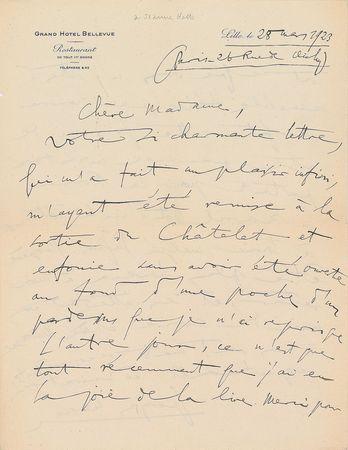 à Jeanne
GRAND HOTEL BELLEVUE
Restaurant
DE TOUT 1er ORDRE
TÉLÉPHONE
Lille, le 28 mars 1923
Paris 26 Rue de
Chère Madame,
Votre si charmante lettre,
qui m'a fait un plaisir infini,
m'ayant été remise à la
sortie du Châtelet et
enfouie sans avoir été ouverte
au fond d'une poche d'un
pardessus que je n'ai repris que
l'autre jour, ce n'est que
tout récemment que j'ai eu
la joie de la lire. Merci pour